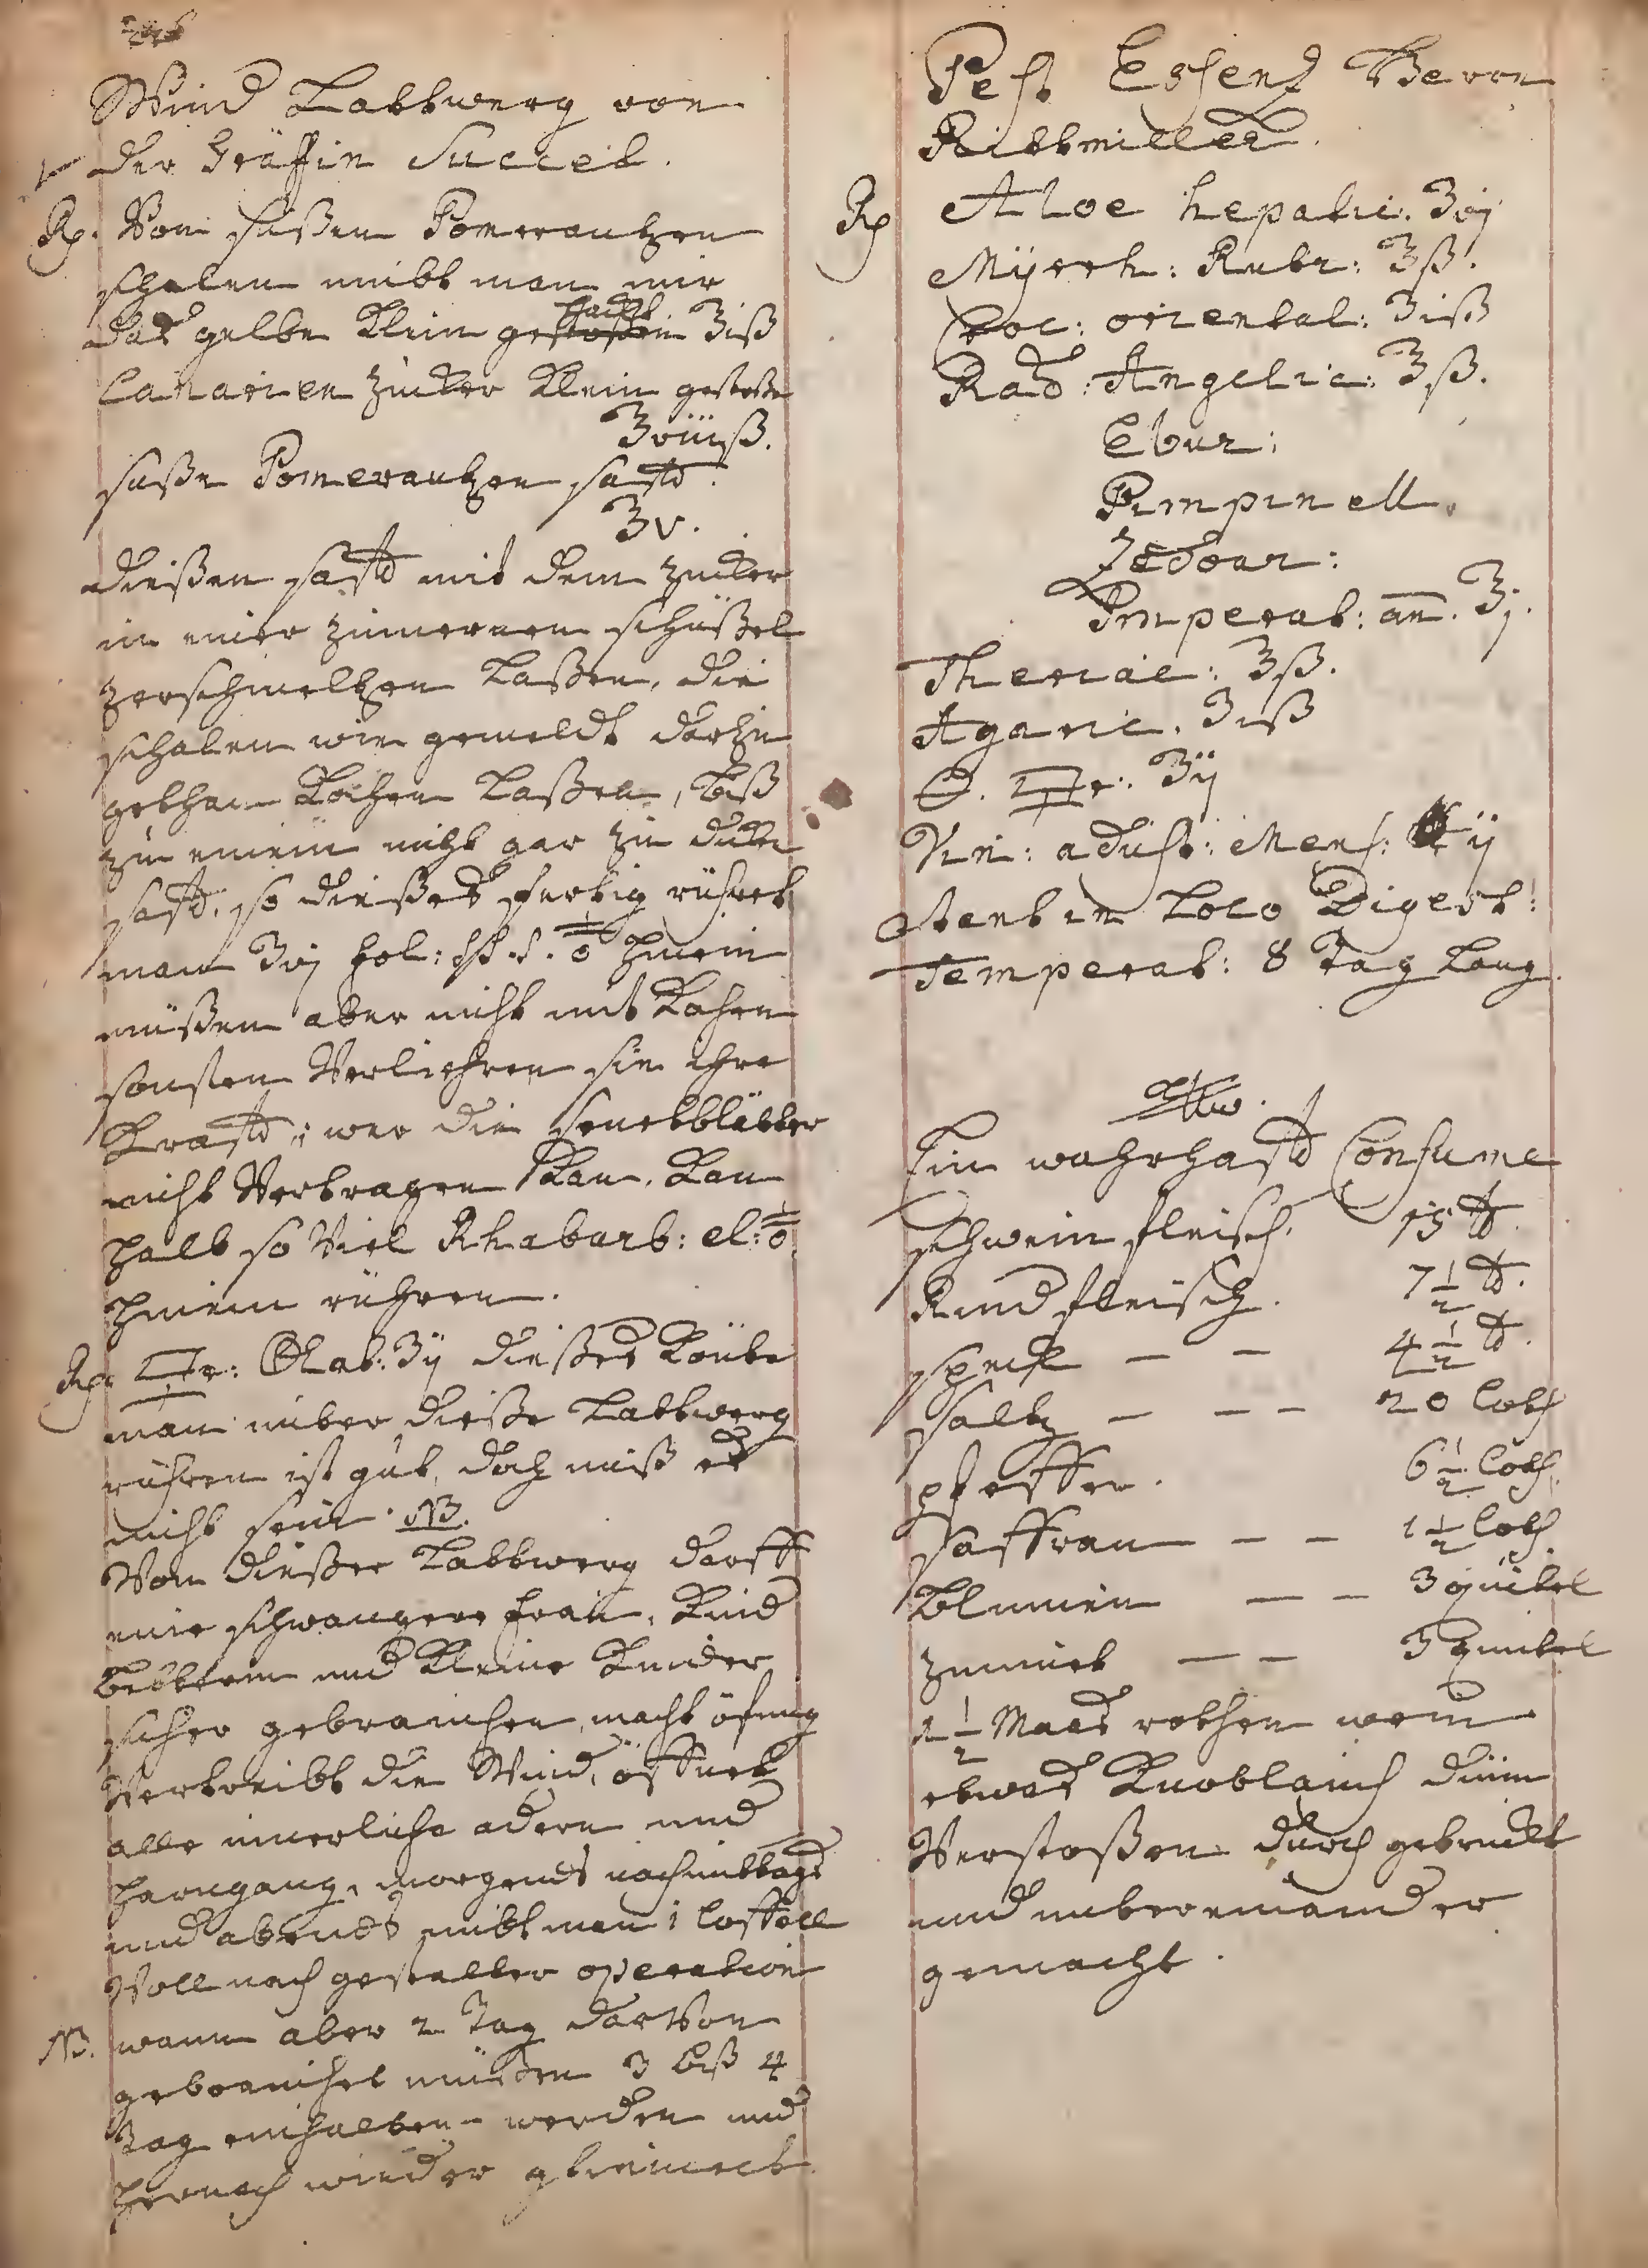 Wind Lattwerg von
der Gräffin Succeet.
Rp. Von süßen Pomerantzen
schalen nimbt man nur
daß gelbe klein gehackt ʒiß
Canarien Zucker klein gestoßen
ʒviiiß.
süße Pomerantzen safft.
ʒv.
dießen safft mit dem zucker
in einer zinnernen schüßel
zerschmeltzen laßen, die
schalen wie gemeldt darzu
gethan kochen laßen, biß
zu einem nicht gar zu dicken
safft, so dießes fertig rühret
man ʒvj fol: hinein
müßen aber nicht mit kochen
sonsten Verliehren sie ihre
krafft, wer die senetblätter
nicht Vertragen kan, kan
halb so Viel Rhabarb: el:
hinein rühren.
Rp. ʒij dießes könte
man unter dieße Lattwerg
rühren ist gut, doch muß es
nicht sein. NB.
Von dießer Lattwerg darff
eine schwangere frau, Kind
betterin und kleine Kinder
sicher gebrauchen, macht öfnung
Vertreibt die Wind, öffnet
alle innerliche adern und
harngang, morgends nachmittags
und abends nimbt man 1 löffell
Voll nach gestalter operation
NB. wann aber 2 Tag darvon
gebrauchet müßen 3 biß 4
Tag einhalten werden und
hernach wieder
Pest Essentz Von
Rittmiller.
Rp Aloe hepatic. ʒvj
Myrrh: Rubr: ʒß.
Croc: oriental: ʒiß
Rad: Angelic: ʒß.
Ebur:
Pimpinell.
Zedoar:
Imperat: an. ʒj.
Theriac: ʒß.
Agaric. ʒiß
ʒij
Vin: adust: Mens: ij
stent in Loco Digest:
Temperat: 8 Tag lang.
Ein wahrhafft Consume
schwein fleisch. 15 ℔.
Rind fleisch. 7 1/2 ℔.
speck — — 4 1/2 ℔.
saltz — — — 20 loth
pfeffer. 6 1/2 loth.
saffran — — 1 1/2 loth.
blumen — — 3 quintel
zimmet — — 3 quintel
1 1/2 Maas rothen wein
etwas Knoblauch dünn
Verstoßen durch getruckt
und untereinander
gemacht.